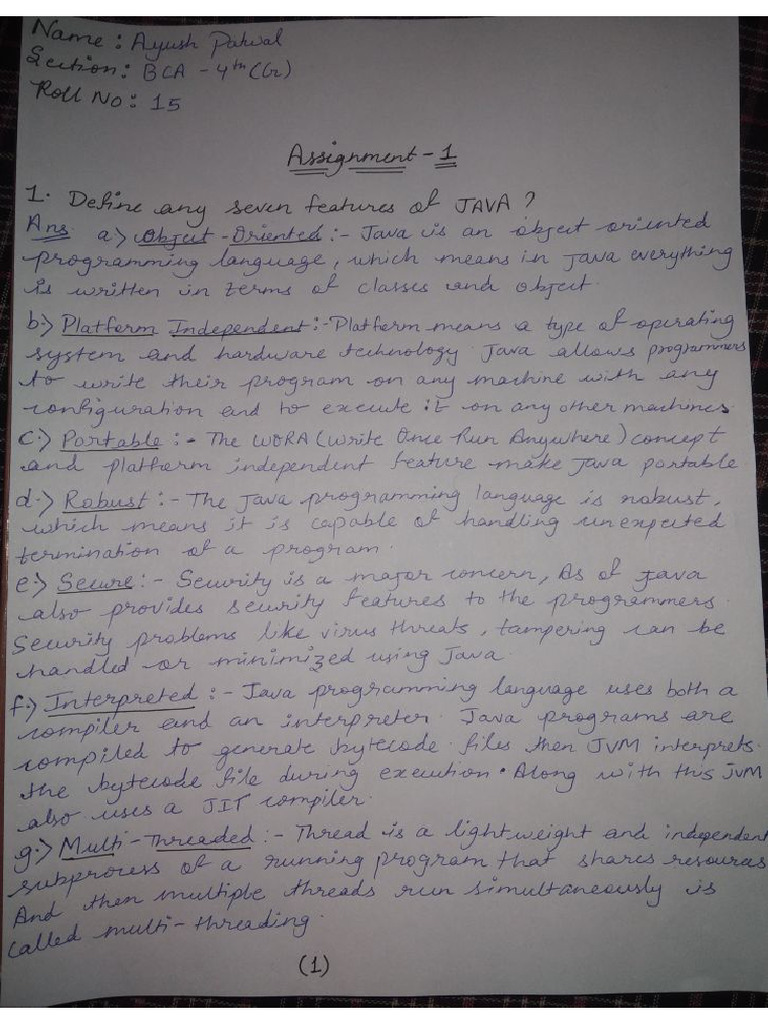 Name: Ayush Patwal
Section: BCA - 4th (G2)
Roll No: 15
Assignment - 1
1. Define any seven features of JAVA ?
Ans a.> Object - Oriented :- Java is an object oriented
programming language, which means in java everything
is written in terms of classes and object.
b.> Platform Independent :- Platform means a type of operating
system and hardware technology. Java allows programmers
to write their program on any machine with any
configuration and to execute it on any other machines.
c.> Portable :- The WORA (Write Once Run Anywhere) concept
and platform independent feature make Java portable.
d.> Robust :- The Java programming language is robust,
which means it is capable of handling unexpected
termination of a program.
e.> Secure :- Security is a major concern, As of java
also provides security features to the programmers.
Security problems like virus threats, tampering can be
handled or minimized using Java.
f.> Interpreted :- Java programming language uses both a
compiler and an interpreter. Java programs are
compiled to generate bytecode files then JVM interprets
the bytecode file during execution. Along with this JVM
also uses a JIT compiler.
g.> Multi-Threaded :- Thread is a lightweight and independent
subprocess of a running program that shares resources
And then multiple threads run simultaneously is
called multi-threading.
(1)